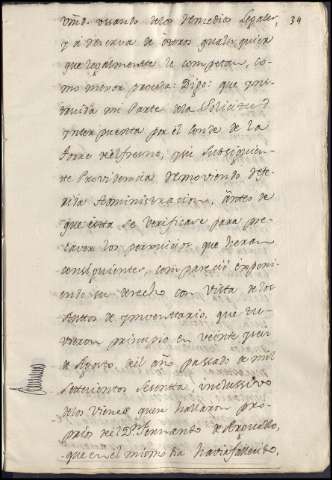 34
Vmd. vsando delos Remedios Legales,
y a reserva de otros quales quiera
que legalmente le competan, co-
mo menor proceda: Digo: que ins-
truida mi Parte dela Solicitud
Ynterpuesta por el Conde de la
Torre del fresno, que subsiguien-
te Providencia
Administracion, antes de
que esta se verificase para pre-
caver los perjuicios que heran
consiguientes, comparecio exponi-
endo su derecho con vista delos
Autos de Ynventario, que tu-
vieron principio en veinte
de Agosto, del año pasado de mil
Settecientos Setenta, inclussivo
delos vienes quese hallaron pro-
prios del Dn. Fernando de
que en el mismo dia havia fallecido,